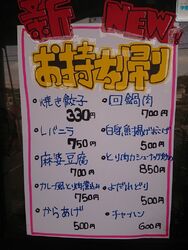 新 NEW
お持ち帰り
・焼き餃子
330円
・レバニラ
750円
・麻婆豆腐
700円
・カレー風とり肉煮込み
750円
・からあげ
500円
・回鍋肉
700円
・白身魚揚げ
500円
・とり肉カシューナッツ炒め
850円
・よだれどり
500円
・チャーハン
600円